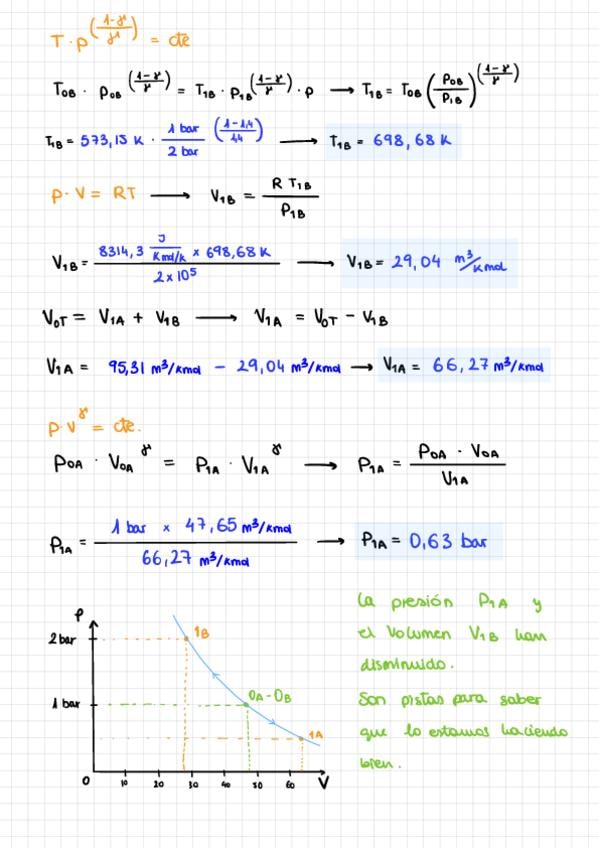 T · p^((1-γ)/γ) = cte
T₀B · p₀B^((1-γ)/γ) = T₁B · p₁B^((1-γ)/γ) · p ⟶ T₁B = T₀B (p₀B/p₁B)^((1-γ)/γ)
T₁B = 573,15 K · 1 bar/2 bar ^((1-1,4)/1,4) ⟶ T₁B = 698,68 K
p · V = RT ⟶ V₁B = R T₁B / P₁B
V₁B = 8314,3 J/Kmol/K × 698,68 K / 2×10⁵ ⟶ V₁B = 29,04 m³/Kmol
V₀T = V₁A + V₁B ⟶ V₁A = V₀T - V₁B
V₁A = 95,31 m³/Kmol - 29,04 m³/Kmol ⟶ V₁A = 66,27 m³/Kmol
p·V^γ = cte.
P₀A · V₀A^γ = P₁A · V₁A^γ ⟶ P₁A = P₀A · V₀A / V₁A
P₁A = 1 bar × 47,65 m³/Kmol / 66,27 m³/Kmol ⟶ P₁A = 0,63 bar
P
2 bar
1B
1 bar
0A-0B
1A
0 10 20 30 40 50 60 V
La presión P₁A y
el Volumen V₁B han
disminuido.
Son pistas para saber
que lo estamos haciendo
bien.